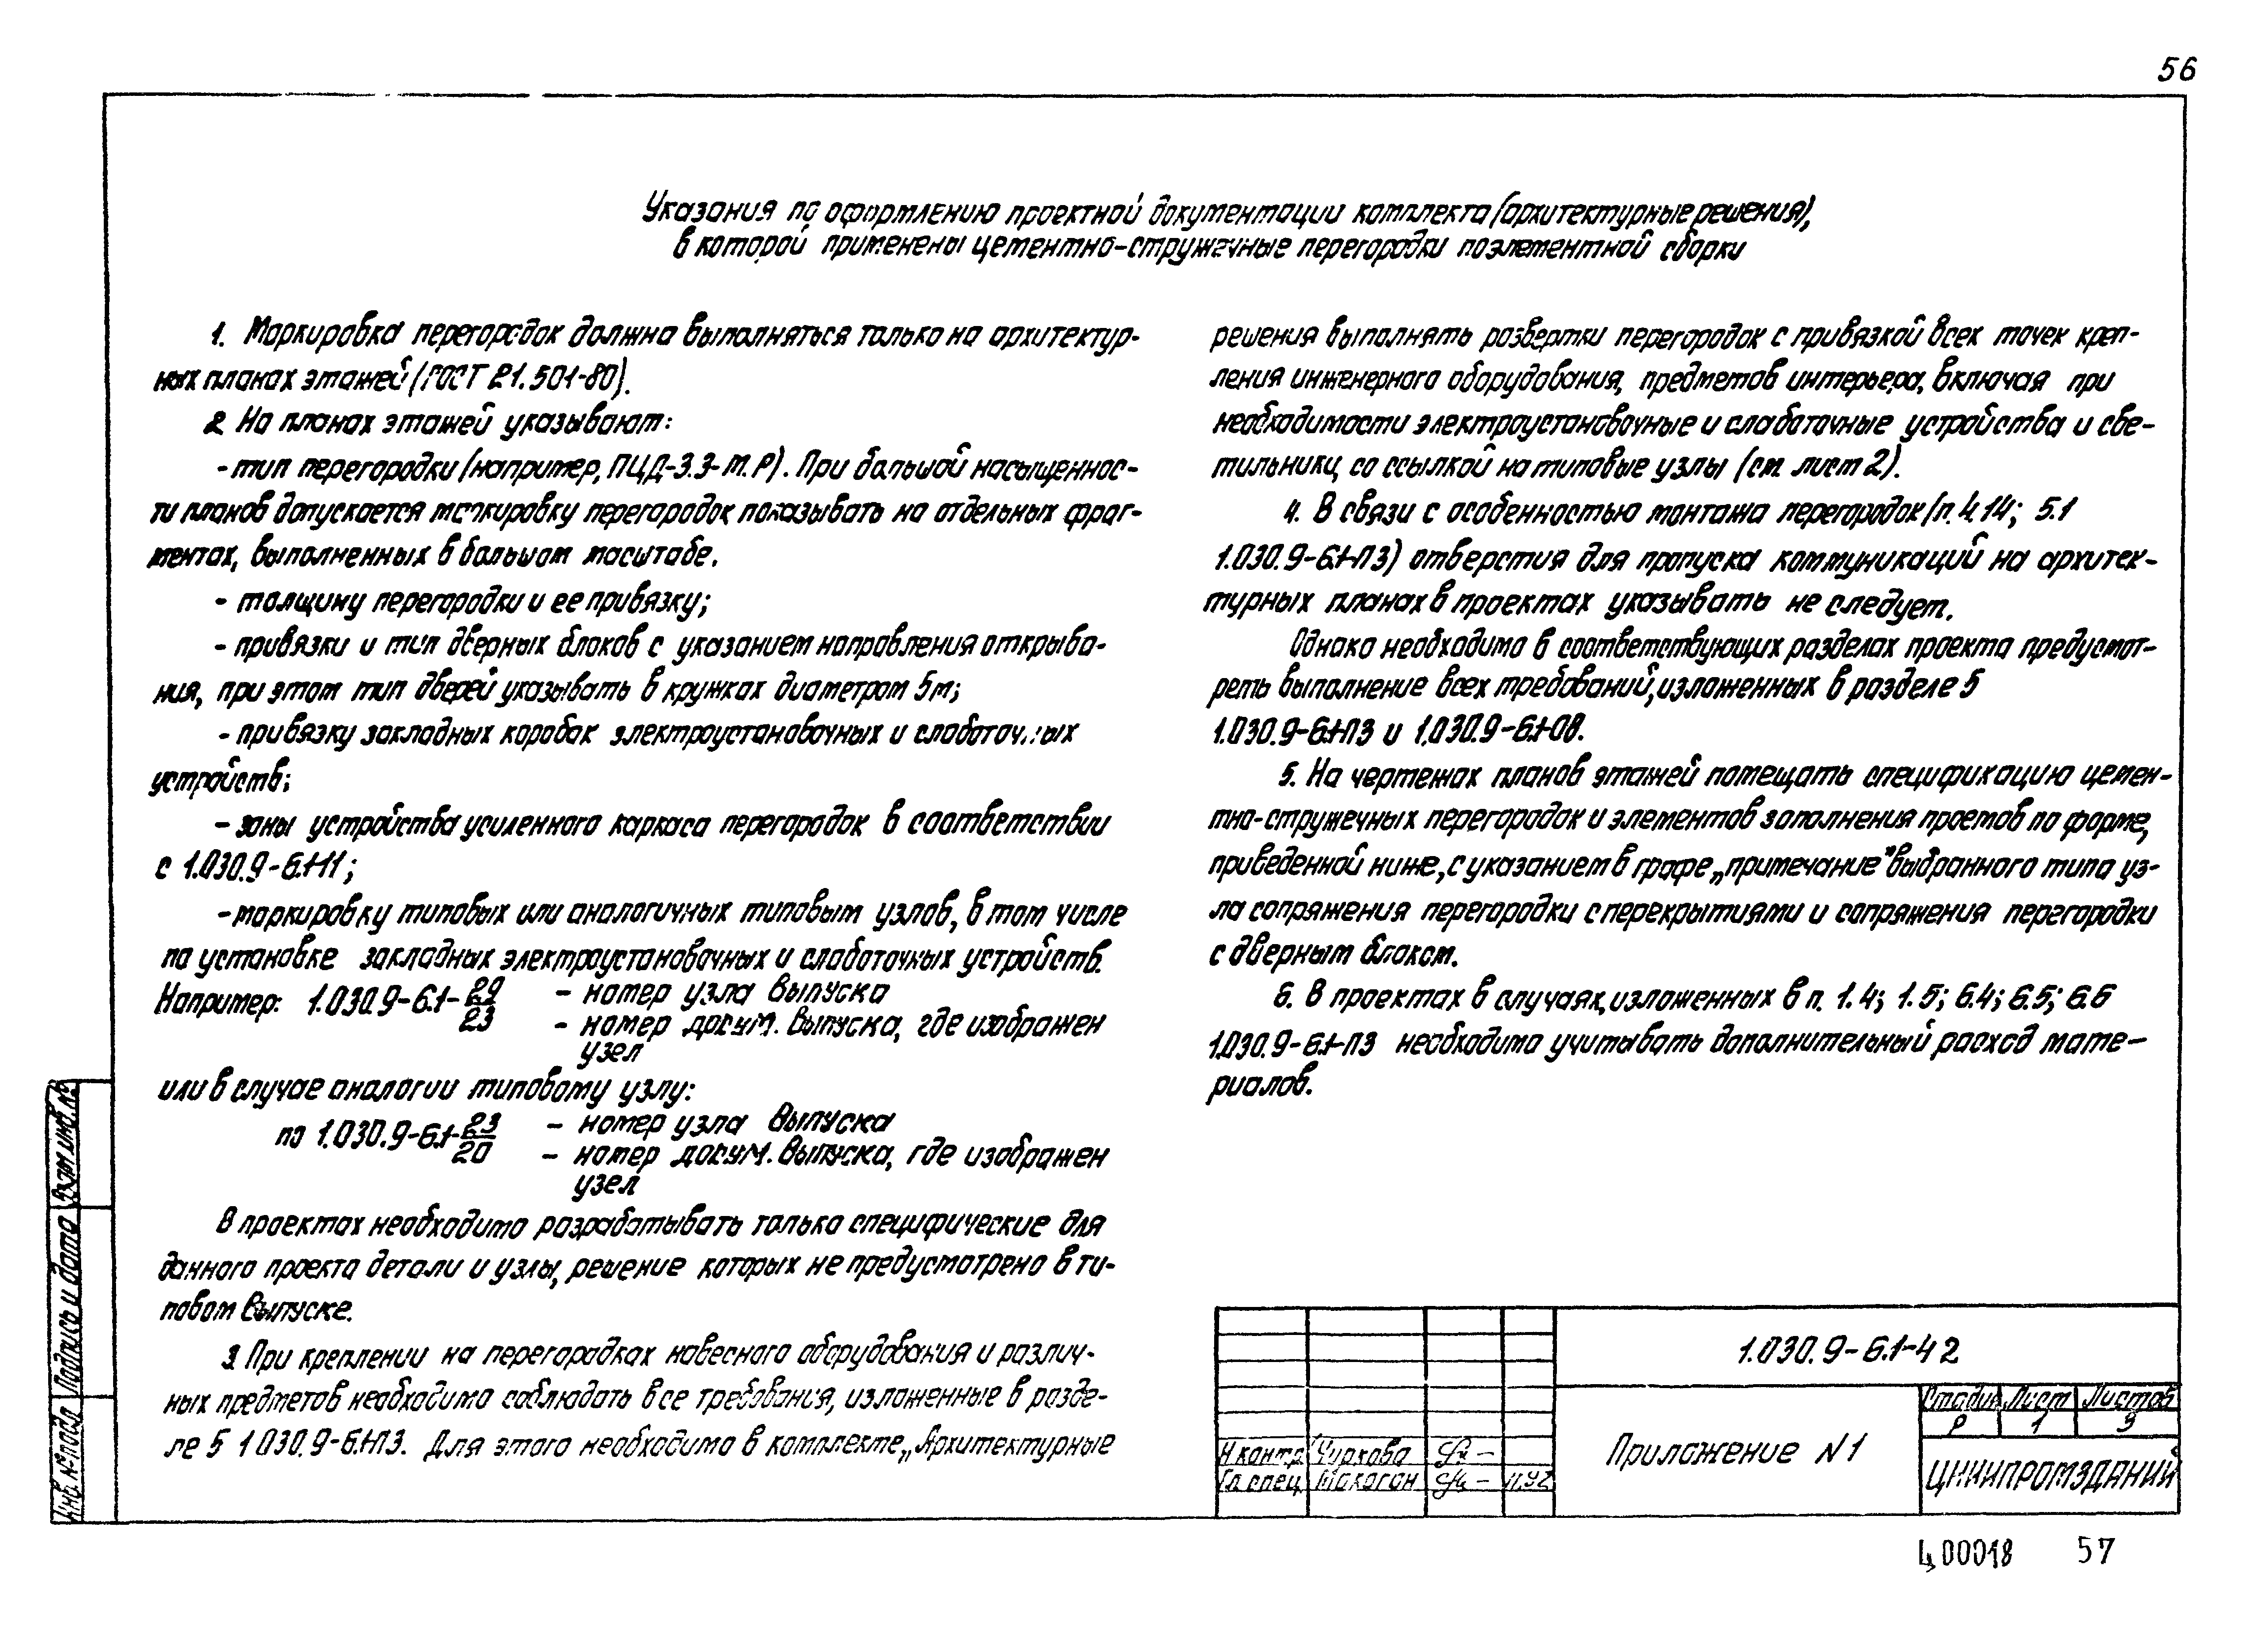 56
Указания по оформлению проектной документации комплекта (архитектурные решения),
в которой применены цементно-стружечные перегородки поэлементной сборки
1. Маркировка перегородок должна выполняться только на архитектур-
ных планах этажей (ГОСТ 21.501-80).
2 На планах этажей указывают:
- тип перегородки (например, ПЦД-3.3-М.Р). При большой насыщеннос-
ти планов допускается маркировку перегородок показывать на отдельных фраг-
ментах, выполненных в большом масштабе.
- толщину перегородки и ее привязку;
- привязки и тип дверных блоков с указанием направления открыва-
ния, при этом тип дверей указывать в кружках диаметром 5м;
- привязку закладных коробок электроустановочных и слаботочных
устройств;
- зоны устройства усиленного каркаса перегородок в соответствии
с 1.030.9-6.1-11;
- маркировку типовых или аналогичных типовым узлов, в том числе
по установке закладных электроустановочных и слаботочных устройств.
Например: 1.030.9-6.1-29/23 - номер узла выпуска
- номер докум. выпуска, где изображен
узел
или в случае аналогии типовому узлу:
по 1.030.9-6.1-23/20 - номер узла выпуска
- номер докум. выпуска, где изображен
узел
В проектах необходимо разрабатывать только специфические для
данного проекта детали и узлы, решение которых не предусмотрено в ти-
повом выпуске.
3. При креплении на перегородках навесного оборудования и различ-
ных предметов необходимо соблюдать все требования, изложенные в разде-
ле 5 1.030.9-6.1-ПЗ. Для этого необходимо в комплекте „Архитектурные
решения выполнять развертки перегородок с привязкой всех точек креп-
ления инженерного оборудования, предметов интерьера, включая при
необходимости электроустановочные и слаботочные устройства и све-
тильники, со ссылкой на типовые узлы (см. лист 2).
4. В связи с особенностью монтажа перегородок (п. 4.14; 5.1
1.030.9-6.1-ПЗ) отверстия для пропуска коммуникаций на архитек-
турных планах в проектах указывать не следует.
Однако необходимо в соответствующих разделах проекта предусмот-
реть выполнение всех требований, изложенных в разделе 5
1.030.9-6.1-ПЗ и 1.030.9-6.1-08.
5. На чертежах планов этажей помещать спецификацию цемен-
тно-стружечных перегородок и элементов заполнения проемов по форме,
приведенной ниже, с указанием в графе „примечание" выбранного типа уз-
ла сопряжения перегородки с перекрытиями и сопряжения перегородки
с дверным блоком.
6. В проектах в случаях, изложенных в п. 1.4; 1.5; 6.4; 6.5; 6.6
1.030.9-6.1-ПЗ необходимо учитывать дополнительный расход мате-
риалов.
1.030.9-6.1-42
Приложение N1
Стадия Лист Листов
Р 1 3
ЦНИИПРОМЗДАНИЙ
Н.контр. Чиркова
Гл.спец. Макаган 11.92
Инв. № подл. Подпись и дата Взам. инв. №
Ц00018 57